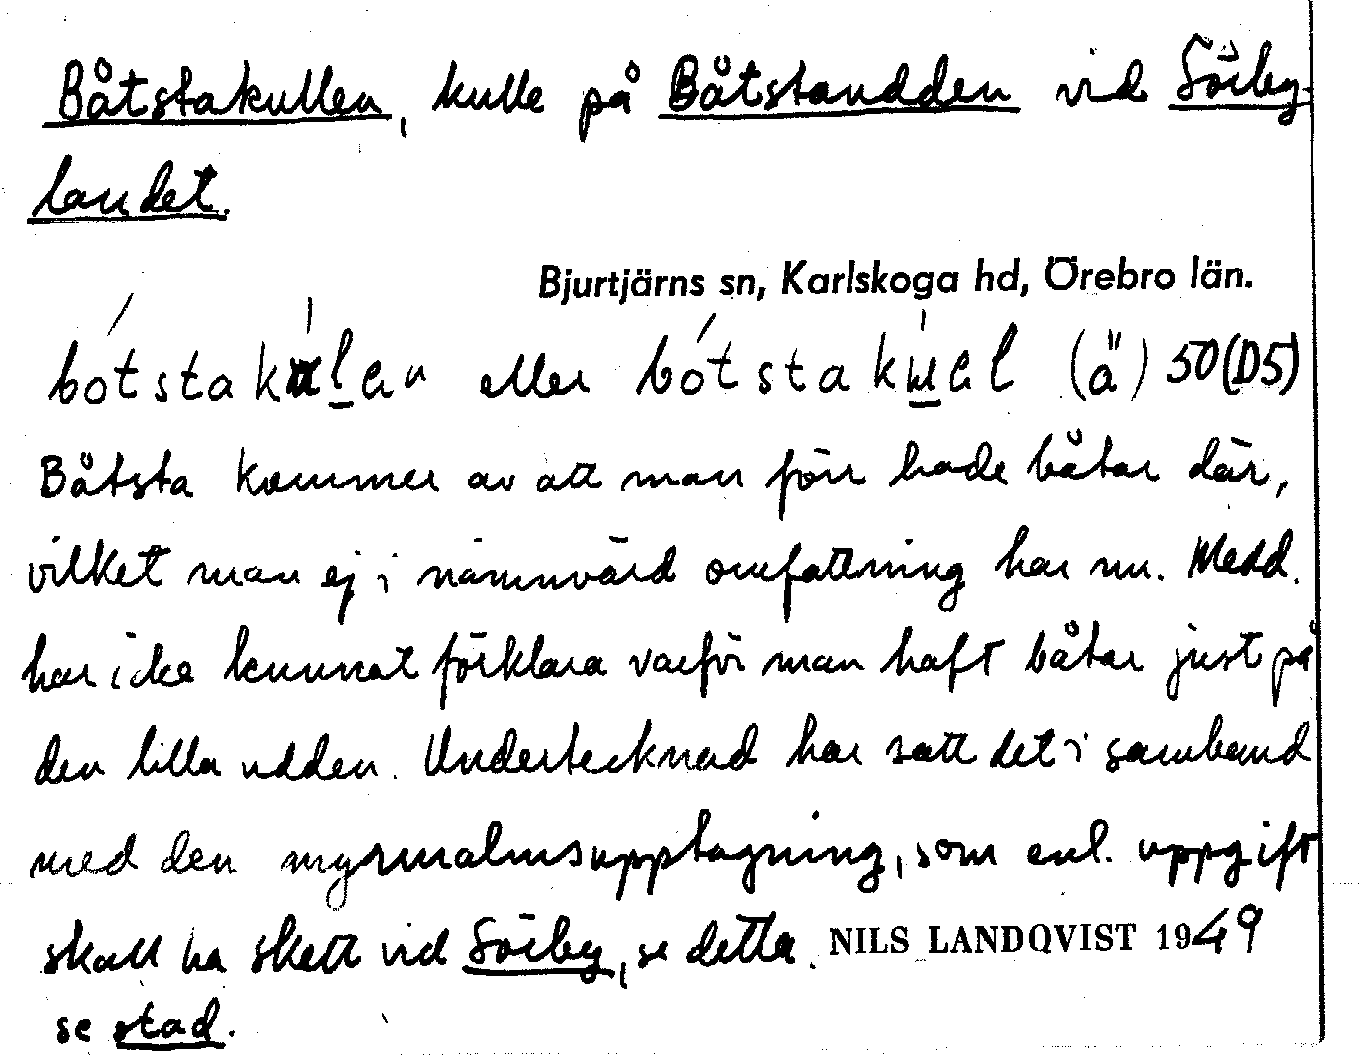 Båtstakullen, kulle på Båtstaudden vid Sörby-
landet.
Bjurtjärns sn, Karlskoga hd, Örebro län.
bótstakúlen eller bótstakúel (ä) 50(D5)
Båtsta kommer av att man förr hade båtar där,
vilket man ej i nämnvärd omfattning har nu. Medd.
har icke kunnat förklara varför man haft båtar just på
den lilla udden. Undertecknad har satt det i samband
med den myrmalmsupptagning, som enl. uppgift
skall ha skett vid Sörby, se detta. NILS LANDQVIST 1949
se stad.